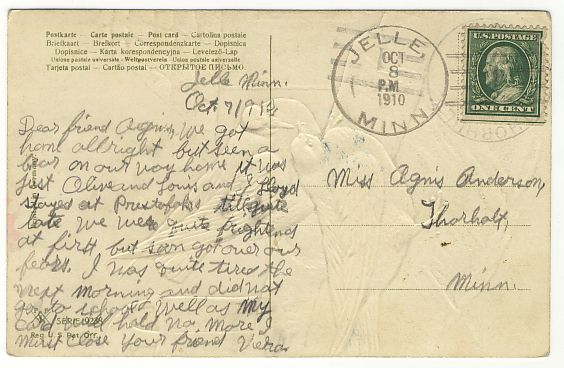 Postkarte - Carte postale - Post card - Cartolina postale
Briefkaart - Brefkort - Correspondenzkarte - Dopisnica
Dopisnice - Karta korespondencyjna - Levelező-Lap
Union postale universelle - Weltpostverein - Union postale universelle
Tarjeta postal - Cartão postal - ОТКРЫТОЕ ПИСЬМО.
Jelle Minn.
Oct 7/910
Dear friend Agnis, We got
home allright but seen a
bear on our way home it was
just Olive and Louis and I Lloyd
stayed at till quite
late We were quite frightend
at first but soon got over our
fears. I was quite tired the
next morning and did not
go to school Well as my
card will hold no more I
must close your friend
SERIE
Reg. U. S. Pat. Off.
JELLE,
OCT
8
P.M.
1910
MINN.
U.S. POSTAGE
ONE CENT
Miss Agnis Anderson,
Thorhalt,
Minn.